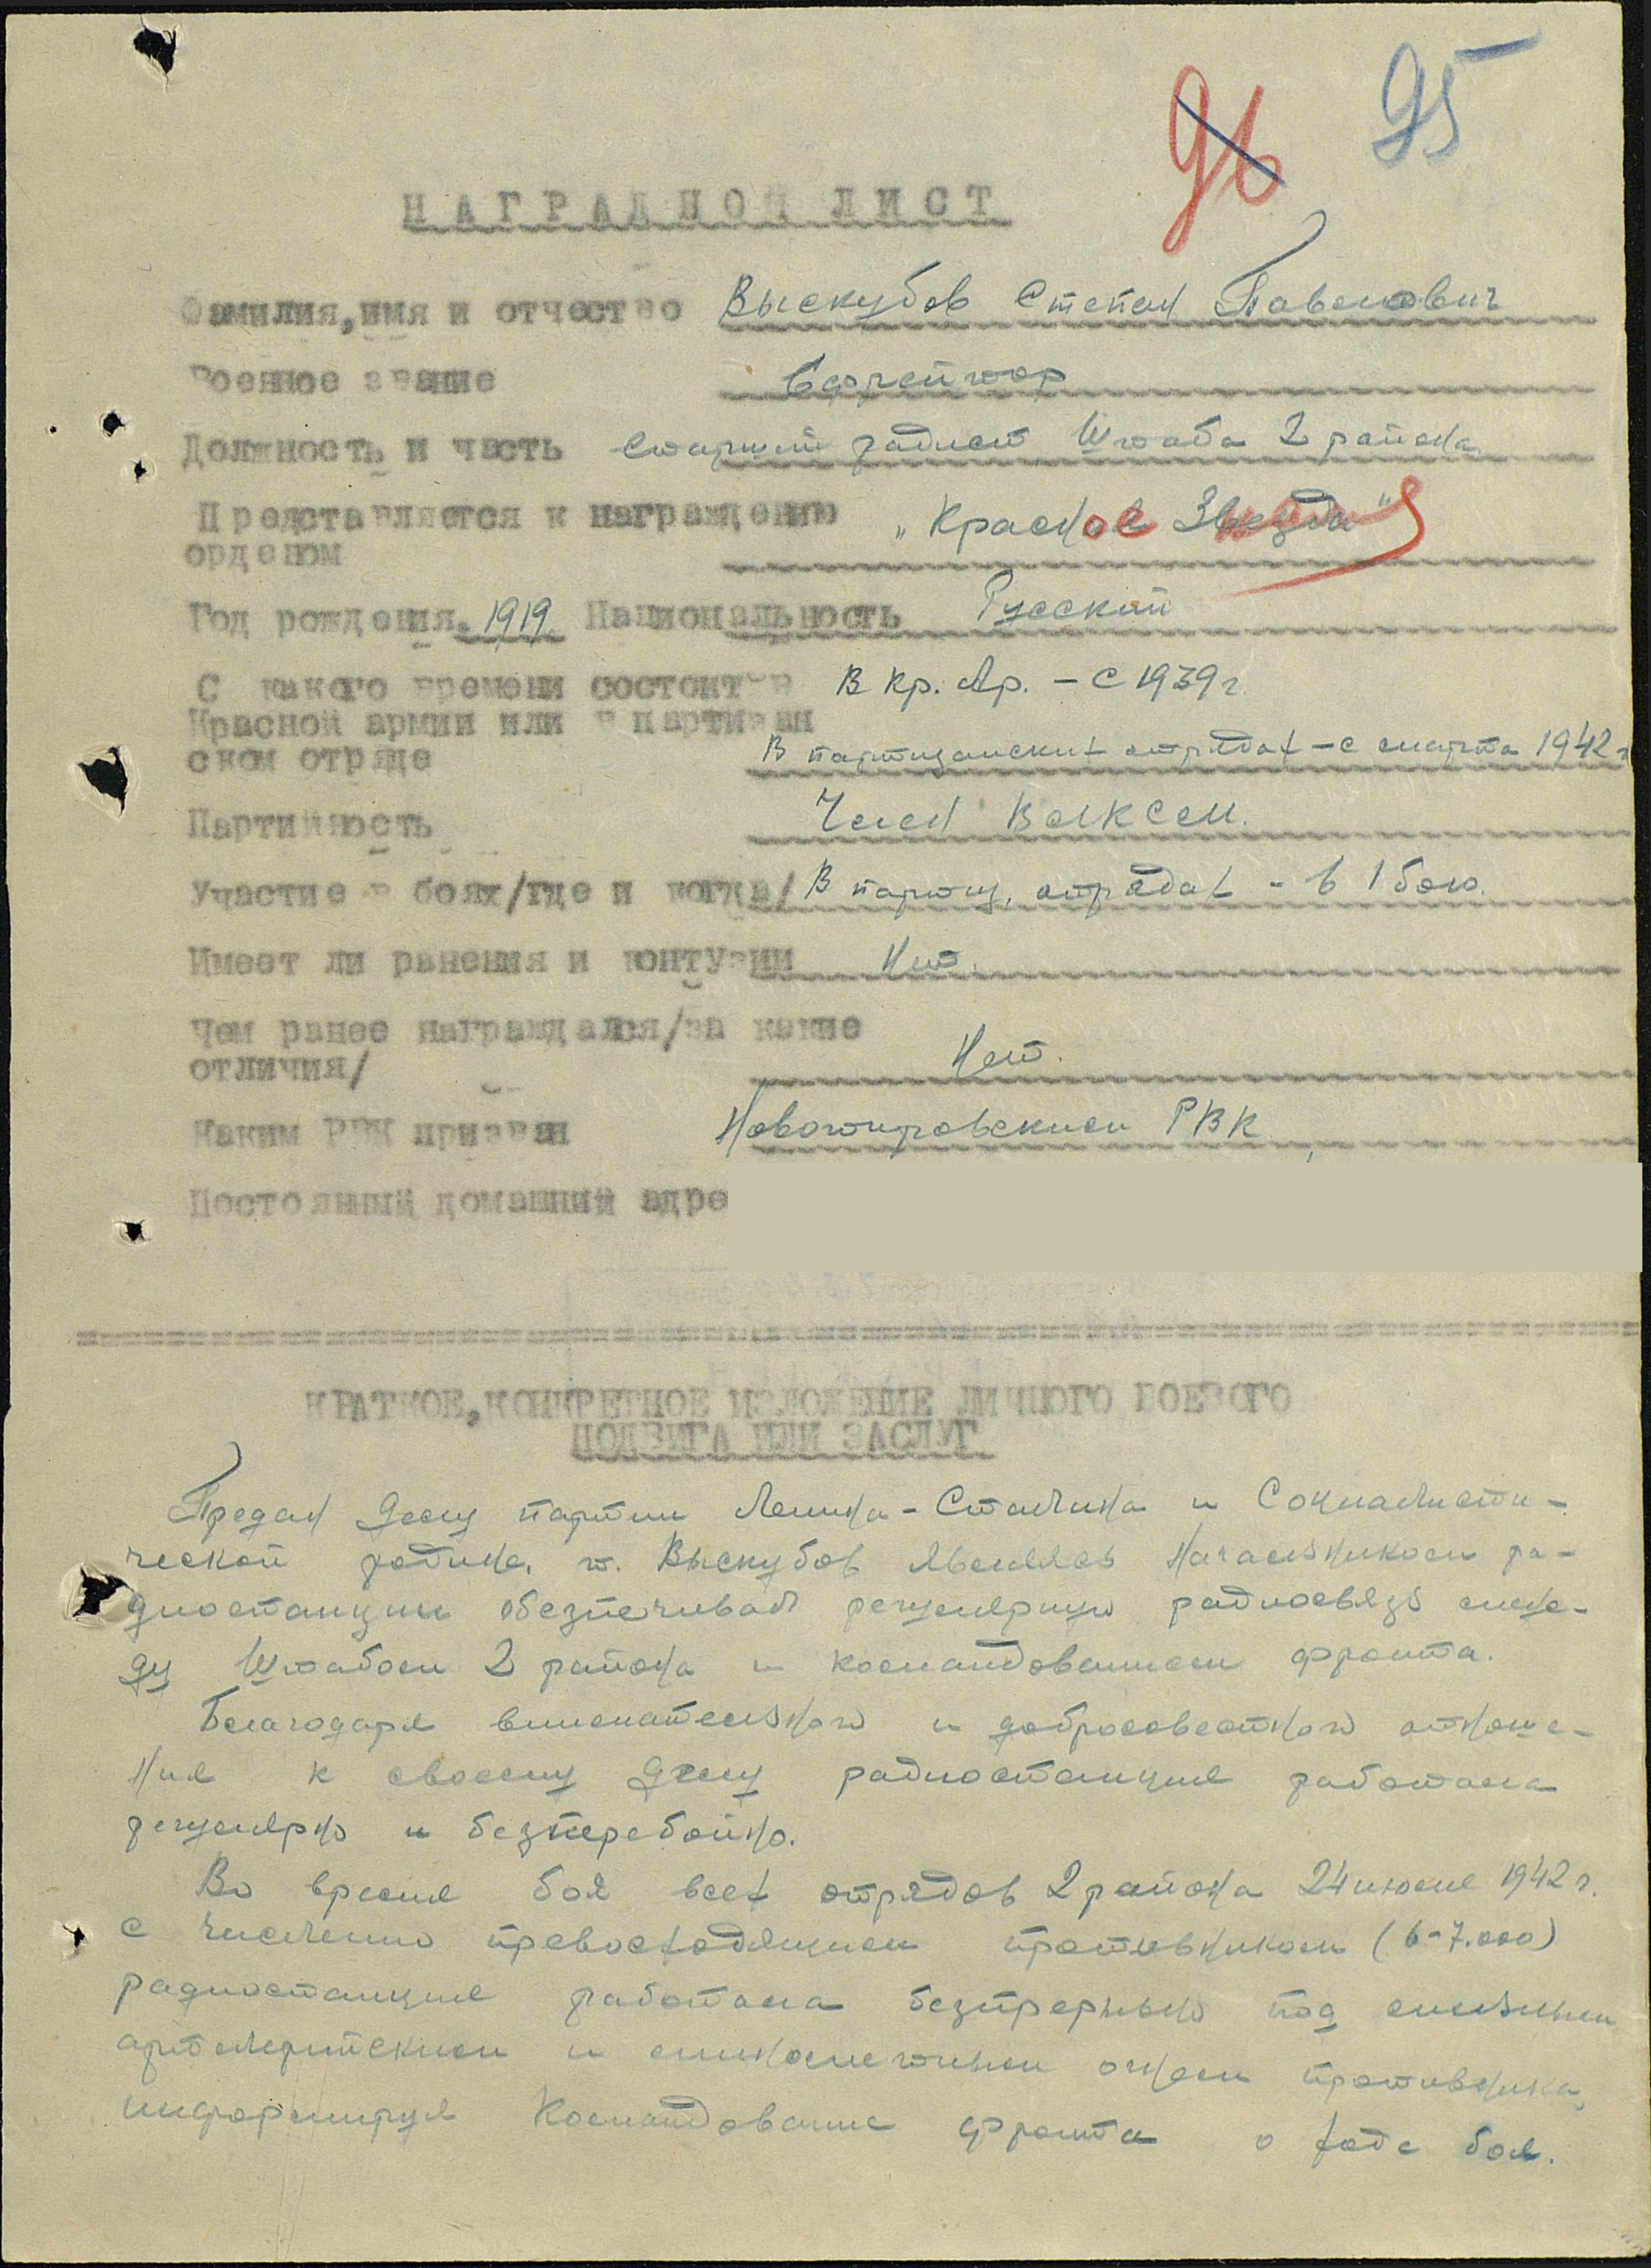 96 95
НАГРАДНОЙ ЛИСТ
Фамилия,имя и отчество Выскубов Степан Павлович
Военное звание Ефрейтор
Должность и часть старший радист Штаба 2 района
Представляется к награждению „Красное Звезда"
орденом
Год рождения. 1919. Национальность Русский
С какого времени состоит в В Кр. Ар. – с 1939 г.
Красной армии или в партизан
ском отряде В партизанских отрядах – с марта 1942 г
Партийность Член ВЛКСМ.
Участие в боях/где и когда/ В партиз. отрядах - в 1 бою.
Имеет ли ранения и контузии Нет.
Чем ранее награждался/за какие
отличия/ Нет.
Каким РВК призван РВК
Постоянный домашний адре
КРАТКОЕ,КОНКРЕТНОЕ ИЗЛОЖЕНИЕ ЛИЧНОГО БОЕВОГО
ПОДВИГА ИЛИ ЗАСЛУГ
Предан делу партии Ленина-Сталина и Социалисти-
ческой родине. т. Выскубов являясь начальником ра-
диостанции обезпечивал регулярную радиосвязь меж-
ду Штабом 2 района и командованием фронта.
Благодаря внимательного и добросовестного отноше-
ния к своему делу радиостанция работала
регулярно и безперебойно.
Во время боя всех отрядов 2 района 24 июля 1942 г.
с численно превосходящим противником (6-7.000)
радиостанция работала безпрерывно под сильным
артилерийским и минометным огнем противника,
информируя Командование фронта о ходе боя.